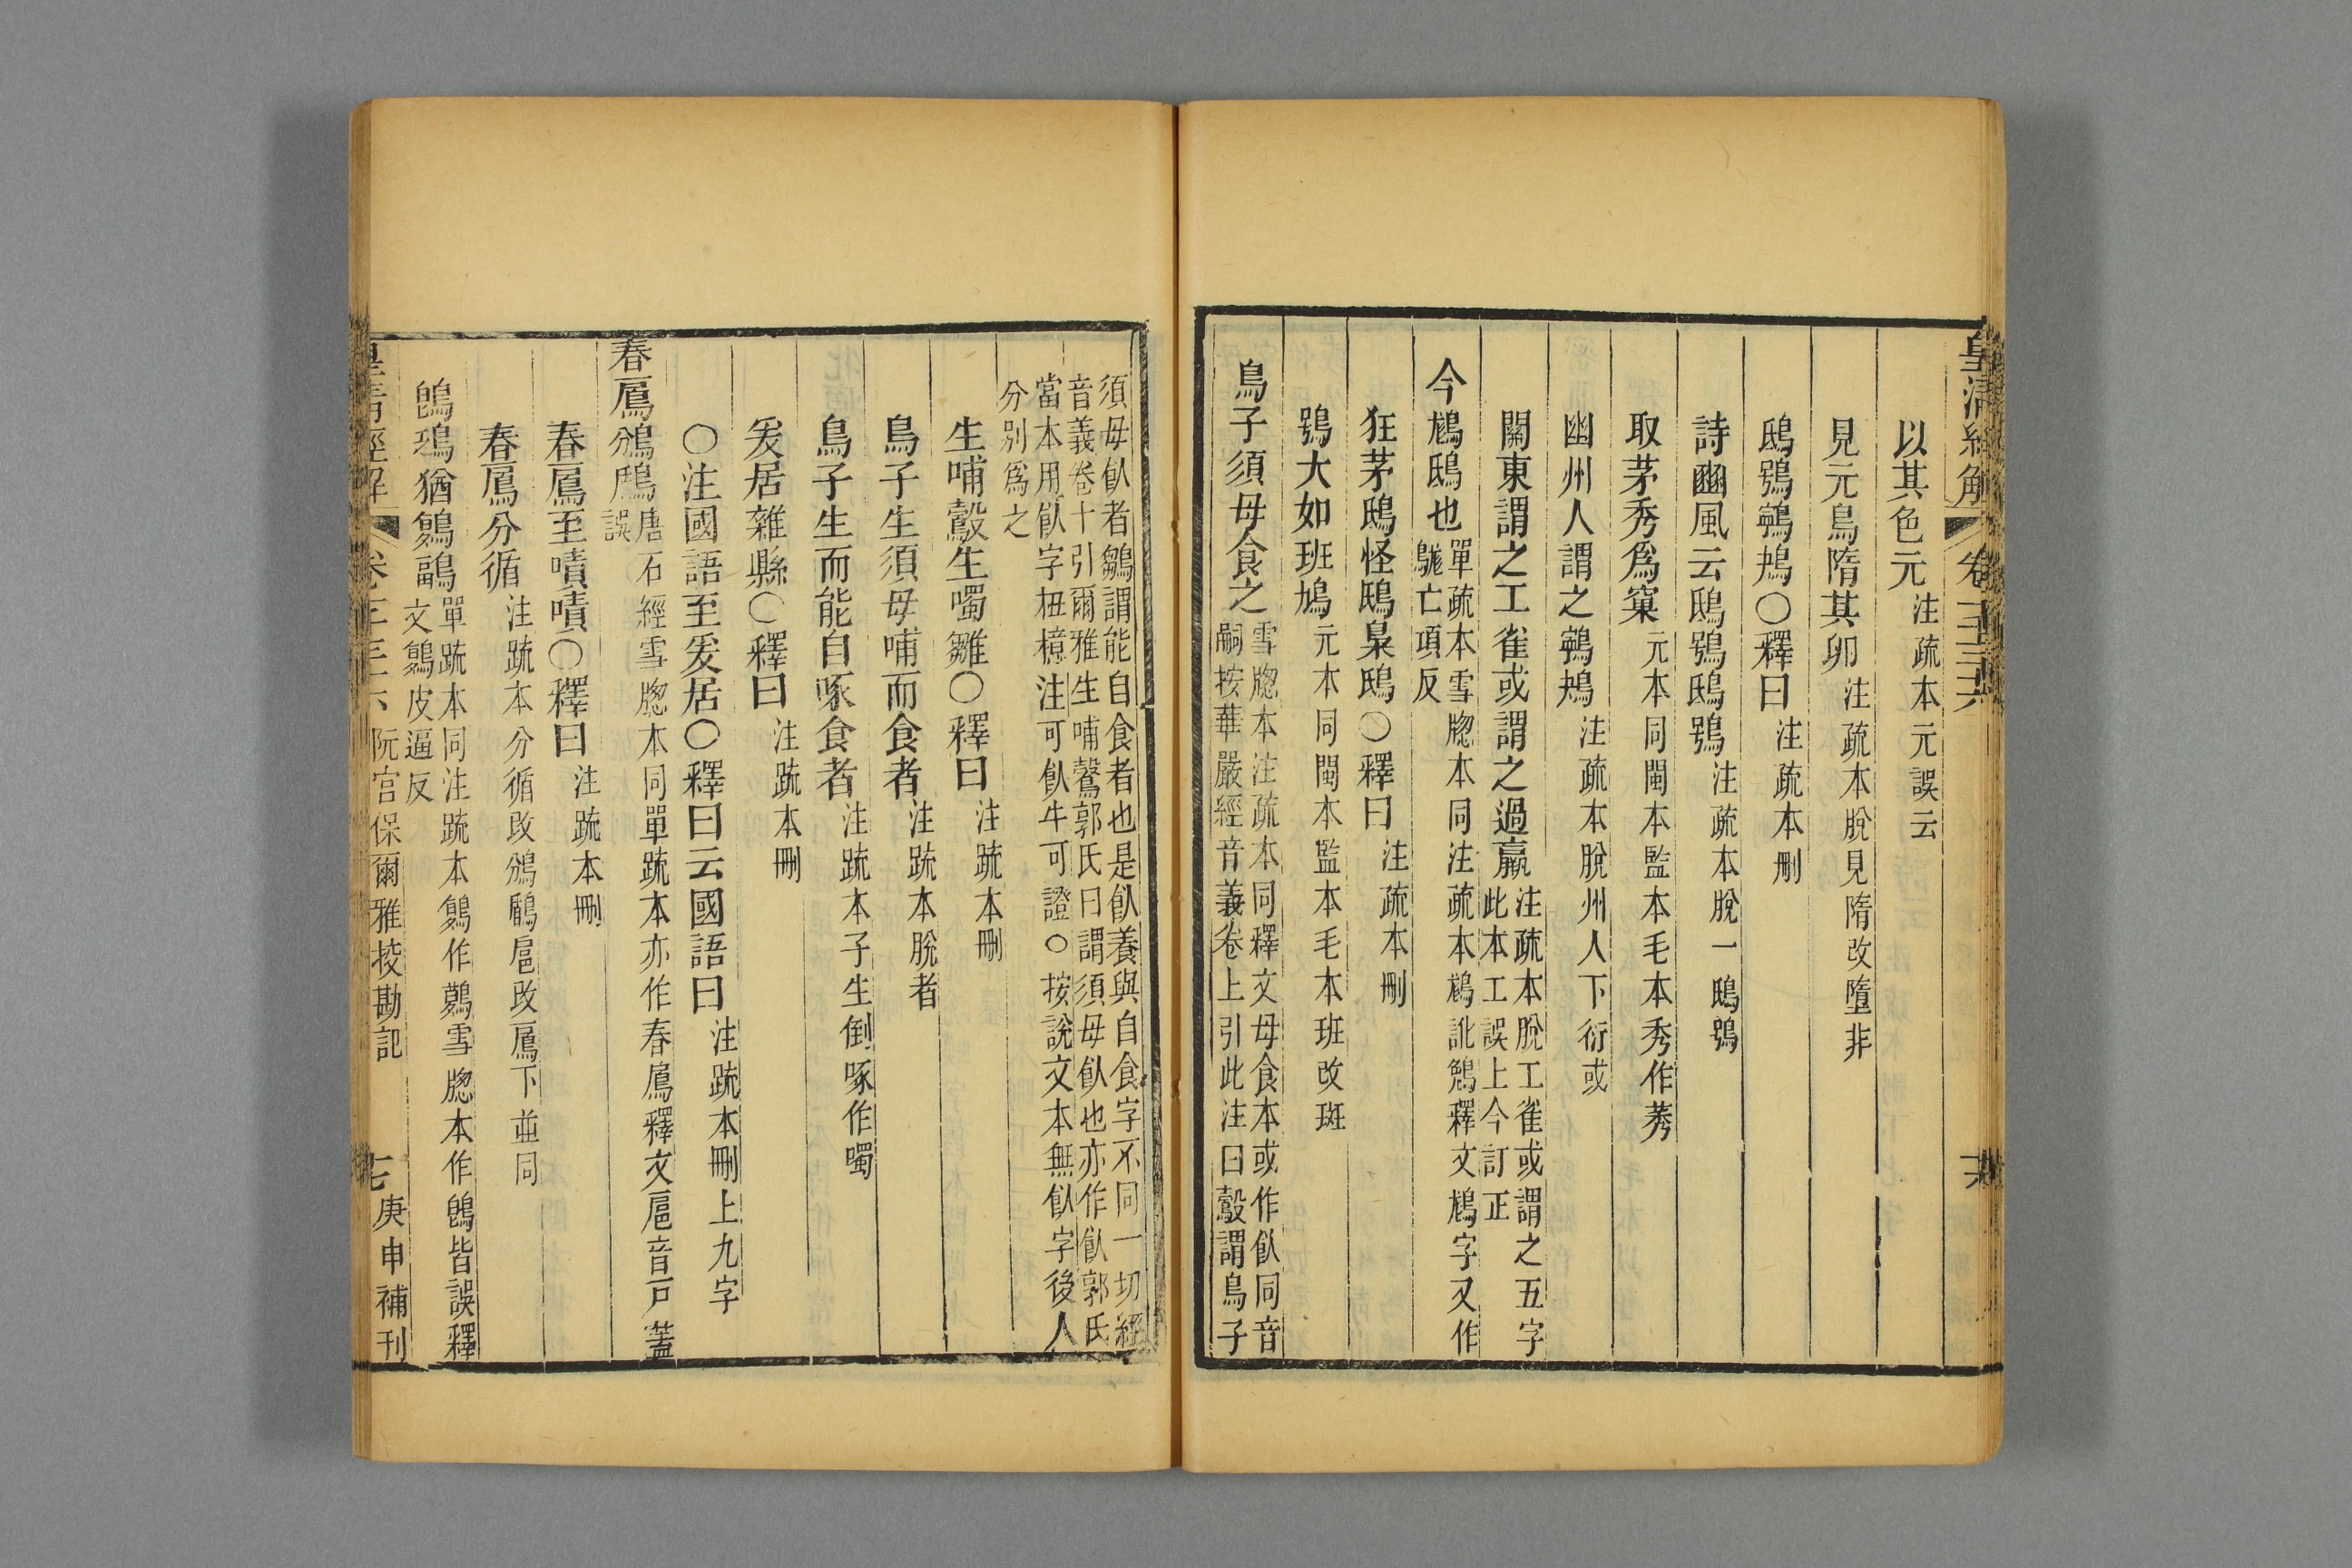 皇清經解 卷一千三十六 大
以其色元注疏本元誤云
見元鳥隋其卵注疏本脫見隋改墮非
鴟鴞鸋鴂〇釋曰注疏本刪
詩豳風云鴟鴞鴟鴞注疏本脫一鴟鴞
取茅秀爲窠元本同閩本監本毛本秀作莠
幽州人謂之鸋鴂注疏本脫州人下衍或
關東謂之工雀或謂之過鸁注疏本脫工雀或謂之五字
此本工誤上今訂正
今鵂鴟也單疏本雪牕本同注疏本鵂訛鵵釋文鵂字又作
䳍亡項反
狂茅鴟怪鴟梟鴟〇釋曰注疏本刪
鴞大如班鳩元本同閩本監本毛本班改斑
鳥子須母食之雪牕本注疏本同釋文母食本或作飤同音
嗣按華嚴經音義卷上引此注曰鷇謂鳥子
須母飤者鶵謂能自食者也是飤養與自食字不同一切經
音義卷十引爾雅生哺鷇郭氏曰謂須母飤也亦作飤郭氏
當本用飤字杻檍注可飤牛可證〇按說文本無飤字後人
分別爲之
生哺鷇生噣雛〇釋曰注疏本刪
鳥子生須母哺而食者注疏本脫者
鳥子生而能自啄食者注疏本子生倒啄作噣
爰居雜縣〇釋曰注疏本刪
〇注國語至爰居〇釋曰云國語曰注疏本刪上九字
春鳸鳻鶞唐石經雪牕本同單疏本亦作春鳸釋文扈音戸蓋
誤
春鳸至嘖嘖〇釋曰注疏本刪
春鳸分循注疏本分循改鳻鶞扈改鳸下並同
鵖鴔猶鶝鶝單疏本同注疏本鶝作鷝雪牕本作鵖皆誤釋
文鶝皮逼反
皇清經解 卷一千三十六 阮宮保爾雅挍勘記 七 庚申補刊